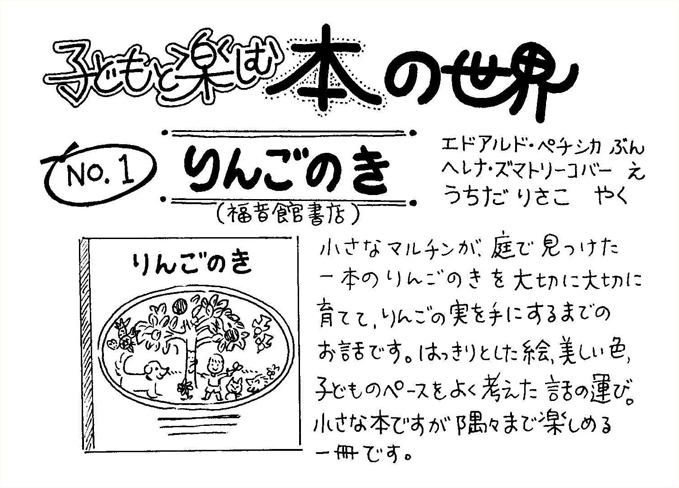 子どもと楽しむ本の世界
No.1
りんごのき
(福音館書店)
エドアルド・ペチシカ ぶん
ヘレナ・ズマトリーコバー え
うちだ りさこ やく
りんごのき
小さなマルチンが、庭で見つけた
一本のりんごのきを大切に大切に
育てて、りんごの実を手にするまでの
お話です。はっきりとした絵、美しい色、
子どものペースをよく考えた話の運び。
小さな本ですが隅々まで楽しめる
一冊です。